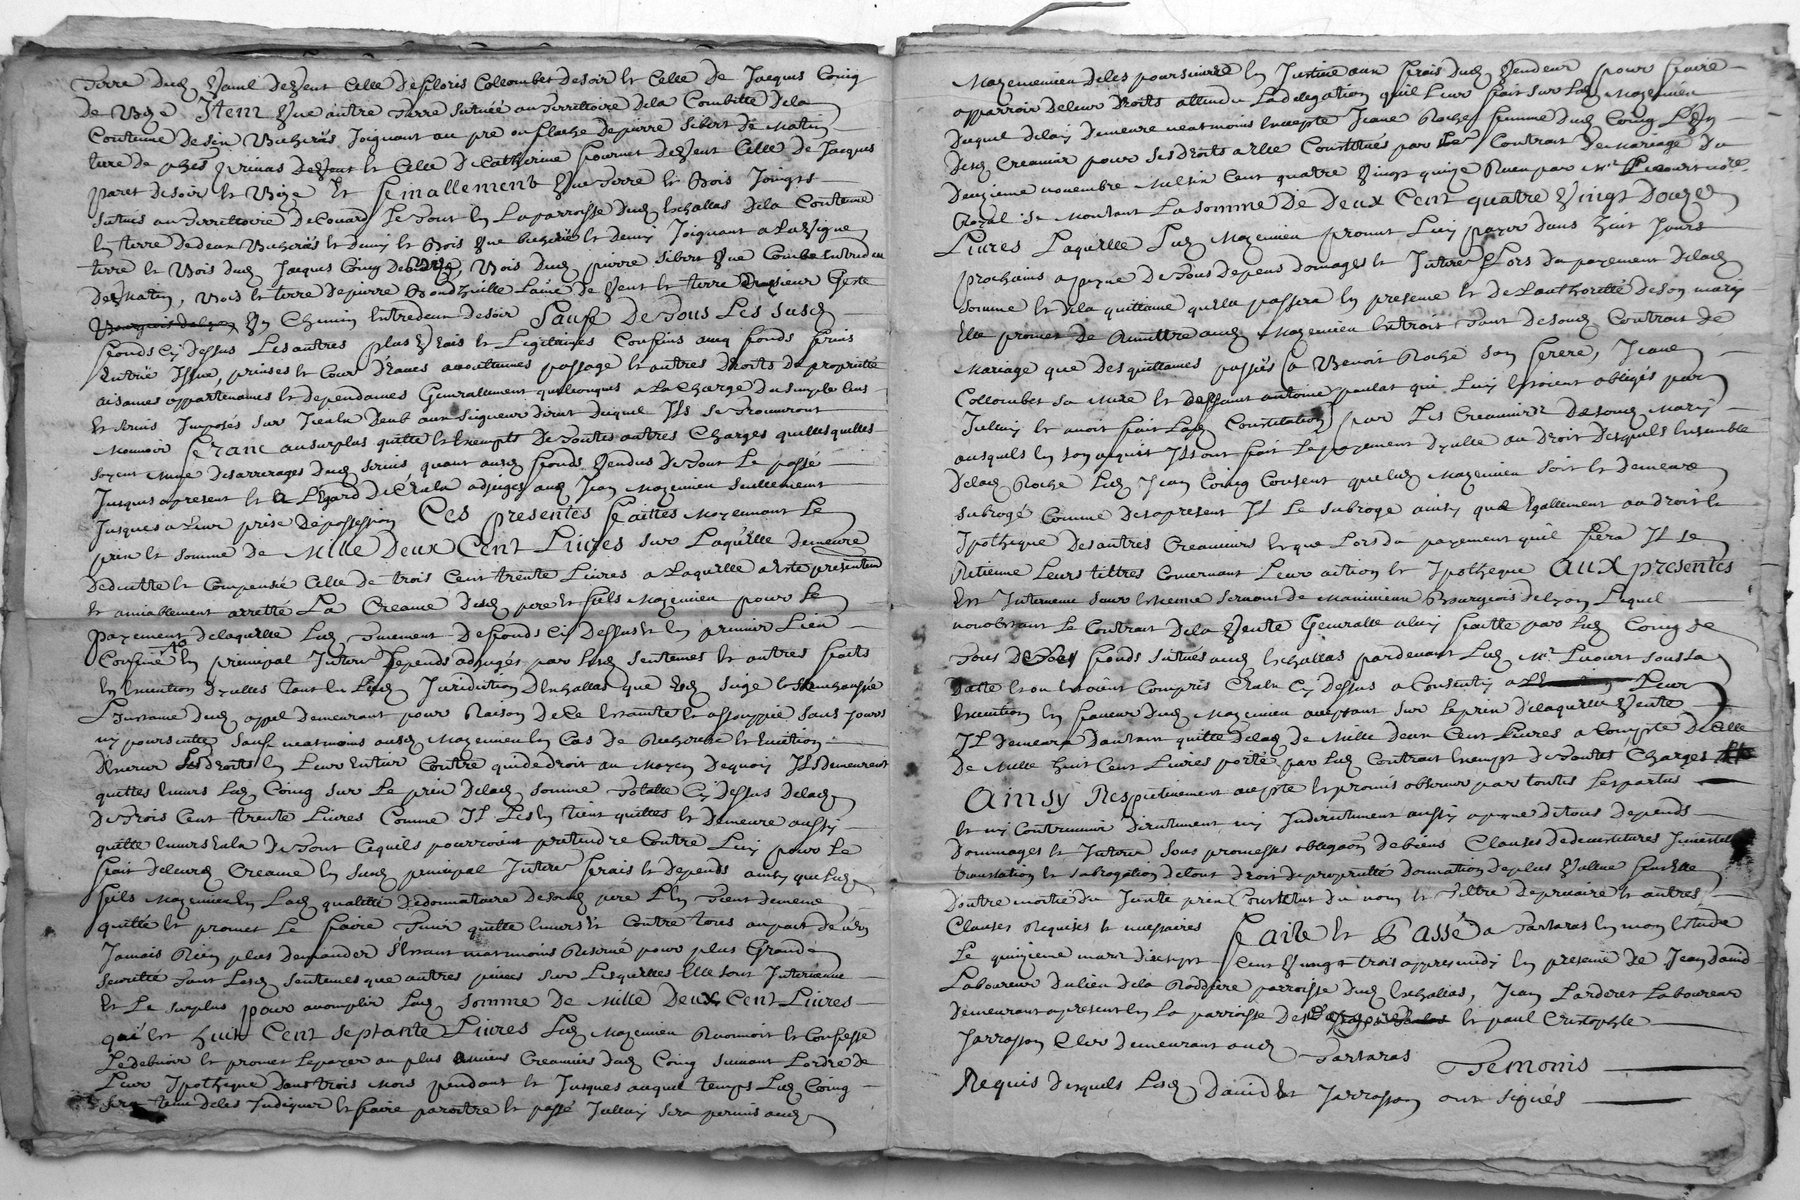 Terre dud. Paul devent Celle de floris Collombet desoir et Celle de Jacques Coing
de Bize Item Une autre Terre Scituée au Territtoire dela Combette dela
Contenue de six Bicherés Joignant au pré ou flache de pierre Sibert de Matin
Terre de devent et Celle de Catherine fournet devent Celle de Jacques
paret desoir et Bize Et finallement Une Terre et Bois Joingts
Scitués au Territtoire de Couard Le Tout en La parroisse dud. Eschallas dela Contenue
la terre de deux Bicherés et demy et Bois Une bicherée et demy Joignant a La Vigne
terre et Bois dud. Jacques Coing de Bize, Bois dud. pierre Sibert Une Combe Entredeux
de Matin, Bois et terre de pierre Bondzuille Lainé de Vent et terre
Un Chemin Entredeux desoir Sauf De Tous Les Susd.
fonds Cy dessus Les autres plus Vrais et Legitimes Confins avec fonds fruis
Entrée Issue, prinses et Cour d'eaues accoutumes passage et autres droits de propriété
aisances appartenances et dependances Generallement quelconques a La Charge du Simple Cens
et Servis Imposés Sur Iceux deub aux Seigneur direct duquel Ils Se Trouveront
Mouvoir franc au surplus quitte et Exempts De Toutes autres Charges quelles quelles
soyent Mme des arrerages dud. Servis quant ausd. fonds Vendus de Tout Le passé
Jusques a present et a L'Egard de Ceux adjugez aud. Jean Mazenieu Seullement
Jusques a Leur prise de possession Ces presentes faittes Moyennant Le
prix et somme de Mille Deux Cent Livres Sur Laquelle demeure
Deduitte et Compensée Celle de trois Cent trente Livres a Laquelle a Esté presentem
et amiablement arretté La Creance desd. pere et fils Mazenieu pour Le
payement de laquelle Lesd. de fonds Cy dessus Et en premier Lieu
Consiné en principal Interest Depends adjugés par Lesd. Sentences et autres faits
en Execution d'ycelles Tant en Lad. Juridiction d'Eschallas que
L'Instance dud. appel demeurant pour Raison de Ce Esteinte et assouppie Sans pouvoir
ny poursuitte Sauf neatmoins ausd. Mazenieu en Cas de Recherche et Eviction
d'Exercer Les droits en Leur Entier Contre qui de droit au Moyen dequoy Ils demeurent
quittes Envers Led. Coing Sur Le prix de lad. Somme Totalle Cy dessus de lad.
De Trois Cent trente Livres Comme Il Les en tient quittes et demeure aussy
quitte Envers Eux De Tout Ce quils pourroient pretendre Contre Luy pour Le
fait de leurd. Creance en Susd. principal Interest frais et depends ainsy que Led.
fils Mazenieu en Lad. qualitté De donnataire de sond. pere L'En Tient demeure
quitte et promet Le faire Tenir quitte Envers et Contre tous au pait de n'en
Jamais Rien plus demander Estant neatmoins Reservé pour plus Grande
Seuretté Tant Lesd. Sentences que autres pieces Sur Lesquelles Elle Sont Intervenue
Et Le surplus pour accomplir Lad. Somme De Mille Deux Cent Livres
qui Est huit Cent septante Livres Led. Mazenieu Reconnoit et Confesse
Le debvoir et promet Le payer au plus anciens Creanciers dud. Coing Suivant L'ordre de
Leur Ipotheque dans trois Mois pendant et Jusques auquel temps Led. Coing
Sera tenu de les Indiquer et faire paroitre et passé Jcelluy Sera permis aud.
Mazenieu de les poursuivre en Justice aux frais dud. Vendeur pour faire
apparoir de leur Droits attendu La delegation quil Leur fait Sur Led. Mazenieu
Duquel delay demeure neatmoins Excepté Jeane Roche femme dud. Coing L'Un
desd. Creancier pour Ses droits a Elle Constitués par Le Contrat De Mariage du
Deuxieme novembre Mil Six Cent quatre Vingt quinze Receu par Mr. Lecourt nore.
Royal Se Montant La Somme De Deux Cent quatre Vingt Douze
Livres Laquelle Led. Mazenieu promet Luy payer dans huit Jours
prochains a peyne De Tous depens domages et Interest Lors du payement de lad.
Somme et de la quittance quelle passera En presence et De L'authoritté de son mary
Elle promet de Remettre aud. Mazenieu Extrait Tant de sond. Contrat de
Mariage que des quittances passées a Benoit Roche Son frere, Jeane
Collombet Sa Mere et deffunt antoine paulat qui Luy Estoient obligés par
Jcelluy et avoit fait Lad. Constitution par Les Creanciers De sond. Mary
ausquels en Son acquit Ils ont fait Le payement d'ycelle au Droit desquels Ensemble
De lad. Roche Led. Jean Coing Consent que led. Mazenieu Soit et demeure
Subrogé Comme Des apresent Il Le Subroge ainsy que Egallement au droit et
Ipotheque Des autres Creanciers Et que Lors du payement quil fera Il Se
Retienne Leurs tiltres Concernant Leur action et Ipotheque Aux presentes
Est Intervenu Sieur Estienne Servant de Bourgeois de Lyon Lequel
nonobstant Le Contrat De la Vente Generalle a luy faitte par Led. Coing de
Tous Des fonds Scitués aud. Eschallas pardevant Led. Mr. Lecourt Sous Sa
Datte Et ou Estoient Compris Ceux Cy dessus a Consenty a Leur
Execution En faveur dud. Mazenieu acceptant Sur Le prix de laquelle Vente
Il demeura d'autant quitte de lad. de Mille deux Cent Livres a Compte de Celle
De Mille huit Cent Livres porté par Led. Contrat Exempt de Toutes Charges
Ainsy Respectivement accepté et promis observer par toutes Les parties
Et n'y Contrevenir directement ny Indirectement aussy a peyne de tous Depends
Dommages et Interest Sous promesses obligaon de biens Clauses de devestitures Investiture
translation et Subrogation de tout Droit de proprietté Donnation de plus Vallue fut Elle
D'outre moitié du Juste prix Constitut du nom et Tiltre de precaire et autres
Clauses Requises et necessaires faite et Passé a Tartaras En mon Estude
Le quinzieme mars dixsept Cent Vingt trois appres midy En presence de Jean David
Laboureur du lieu de la Roddiere parroisse dud. Eschallas, Jean Larderet Laboureur
demeurant apresent En La parroisse des et paul Cristophle
Jarrosson Clerc demeurant aud. Tartaras Temoins
Requis desquels Lesd. David Et Jarrosson ont Signés